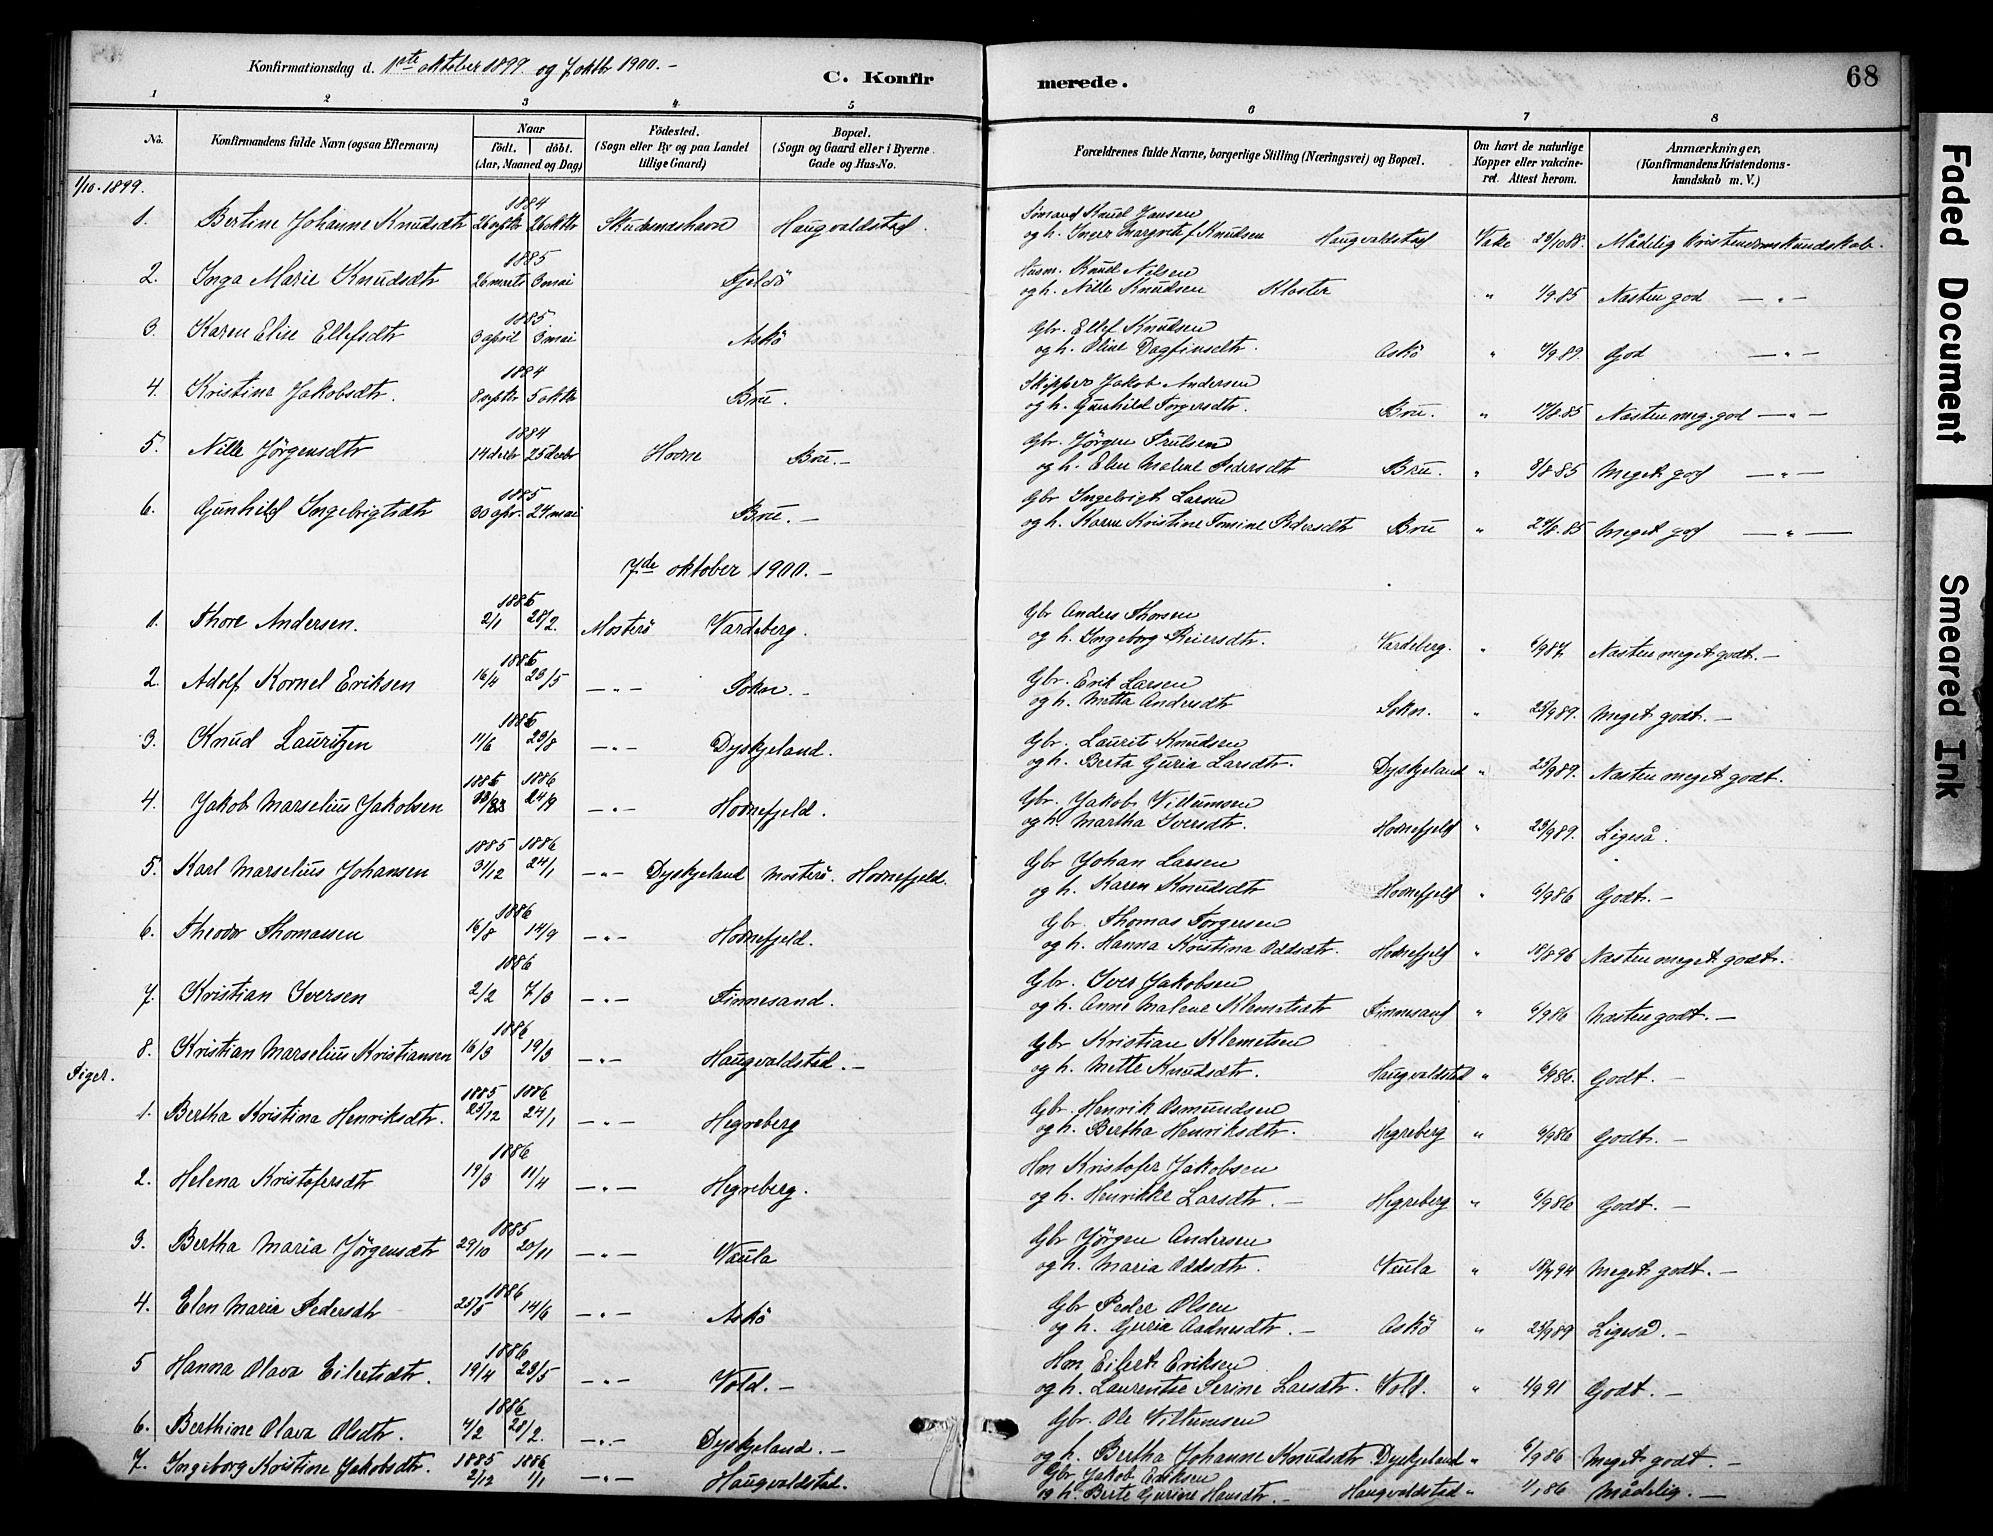 Konfirmationsdag d. 1ste oktober 1899 og 7 oktbr 1900. –
C. Konfirmerede.
68
1 2 3 4 5 6 7 8
No.
Konfirmandens fulde Navn (ogsaa Efternavn)
Naar
födt. döbt.
(Aar, Maaned og Dag)
Födested.
(Sogn eller By og paa Landet tillige Gaard)
Bopæl.
(Sogn og Gaard eller i Byerne Gade og Hus-No.
Forældrenes fulde Navne, borgerlige Stilling (Næringsvei) og Bopæl.
Om havt de naturlige Kopper eller vakcineret. Attest herom.
Anmærkninger,
(Konfirmandens Kristendomskundskab m. V.)
1/10. 1899.
1. Bertine Johanne Knudsdtr 1884 26 septbr 26 oktbr Skudesneshavn Haugvaldstad.
Sömand Knud Jansen
og h. Inger Margrete Knudsen Haugvaldstad Vake 23/10 88. Mådelig Kristendomskundskab.
2. Inga Marie Knudsdtr 1885 26 marts 3 mai Fjelö
Husm. Knud Nilsen
og h. Nille Knudsen Kloster " 1/9. 85 Næsten god — " —
3. Karen Elise Ellefsdtr 1885 3 april 3 mai Askö
Gbr. Ellef Knudsen
og h. Eline Dagfinsdtr. Askö " 4/9 89. God — " —
4. Kristine Jakobsdtr. 1884 8 septbr 5 oktbr Bru.
Skipper Jakob Andersen
og h. Gunhild Torgersdtr. Bru. " 17/8. 85 Næsten meg. god — " —
5. Nille Jörgensdtr 1884 14 decbr 25 decbr Hodne Bru. –
Gbr. Jörgen Trulsen
og h. Elen Malene Pedersdtr Bru. " 3/8 85 Meget god — " —
6. Gunhild Ingebrigtsdtr 1885 30 apr. 24 mai Bru. –
Gbr Ingebrigt Larsen
og h. Karen Kristine Tomine Pedersdtr Bru " 24/8. 85 Meget god — " —
7de oktober 1900. –
1. Thore Andersen. 1886 2/1 28/2. Mosterö Vardeberg.
Gbr Anders Thorsen
og h. Ingeborg Reiersdtr. Vardeberg. " 6/9 87. Næsten meget godt. –
2. Adolf Kornel Eriksen 1886 16/4 23/5 — " — Sokn. –
Gbr. Erik Larsen
og h. Metta Andersdtr Sokn. " 23/9 89. Meget godt. –
3. Knud Lauritzen 1886 11/6 29/8 — " — Dyskjeland.
Gbr. Laurits Knudsen
og h. Berta Guria Larsdtr. Dyskjeland " 23/9 89. Næsten meget godt.
4. Jakob Marselius Jakobsen 1886 1886 24/9 — " — Hodnefjeld.
Gbr. Jakob Viltumsen
og h. Martha Iversdtr. Hodnefjeld " 23/9 89. Ligeså.
5. Karl Marselius Johansen 1885 1886 31/12 24/1 — " — Dyskjeland Mosterö. Hodnefjeld.
Gbr Johan Larsen
og h. Karen Knudsdtr Hodnefjeld " 6/9 86 Godt. –
6. Theodor Thomassen 1886 16/8 14/9 — " — Hodnefjeld.
Gbr. Thomas Torgersen
og h. Hanna Kristina Oddsdtr. Hodnefjeld " 18/8 96 Næsten meget godt.
7. Kristian Iversen 1886 2/2 7/3 — " — Finnesand.
Gbr. Iver Jakobsen
og h. Anne Malene Klemetsdtr Finnesand " 6/9 86 Næsten godt. –
8. Kristian Marselius Kristiansen 1886 16/3 19/3 — " — Haugvaldstad. –
Gbr Kristian Klemetsen
og h. Mette Knudsdtr. Haugvaldstad " 6/9 86. Godt. –
Piger.
1. Bertha Kristina Henriksdtr. 1885 1886 25/12 24/1 — " — Hegreberg
Gbr. Henrik Asmundsen
og h. Bertha Henriksdtr. Hegreberg " 6/9 86 Godt. –
2. Helena Kristofersdtr 1886 19/3 11/4 — " — Hegreberg.
Hm Kristofer Jakobsen
og h. Henrikke Larsdtr. – Hegreberg " 6/9 86 Godt. –
3. Bertha Maria Jörgensdtr 1885 29/10 20/11 — " — Vaula
Gbr Jörgen Andersen
og h. Maria Oddsdtr. Vaula " 18/7 94 Meget godt. –
4. Elen Maria Pedersdtr 1886 23/5 14/6 — " — Askö
Gbr Peder Olsen
og h. Guria Aadnesdtr. – Askö " 23/9 89 Ligeså. –
5 Hanna Olava Eilertsdtr. 1886 19/4 23/5 — " — Vold. –
Hm Eilert Eriksen
og h. Laurentse Serine Larsdtr. Vold. " 1/9 91 Godt. –
6. Berthine Olava Olsdtr. 1886 4/2 28/2. — " — Dyskjeland. –
Gbr. Ole Viltumsen
og h. Bertha Johanne Knudsdtr Dyskjeland " 6/9 86 Meget godt. –
7. Ingeborg Kristine Jakobsdtr. 1885 1886 2/12 1/1 — " — Haugvaldstad.
Gbr Jakob Eriksen
og h. Berte Gurine Hansdtr. – Haugvaldstad " Mådelig. –
Faded Document
Smeared Ink